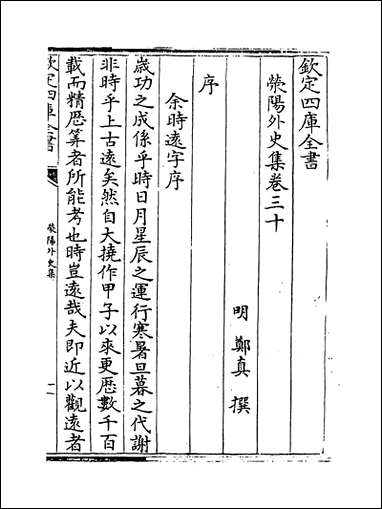 欽定四庫全書
滎陽外史集卷三十
明 鄭真 撰
序
余時遠字序
歳功之成係乎時日月星辰之運行寒暑旦暮之代謝
非時乎上古遠矣然自大撓作甲子以來更歴數千百
載而精歴筭者所能考也時豈遠哉夫即近以觀遠者
欽定四庫全書
滎陽外史集